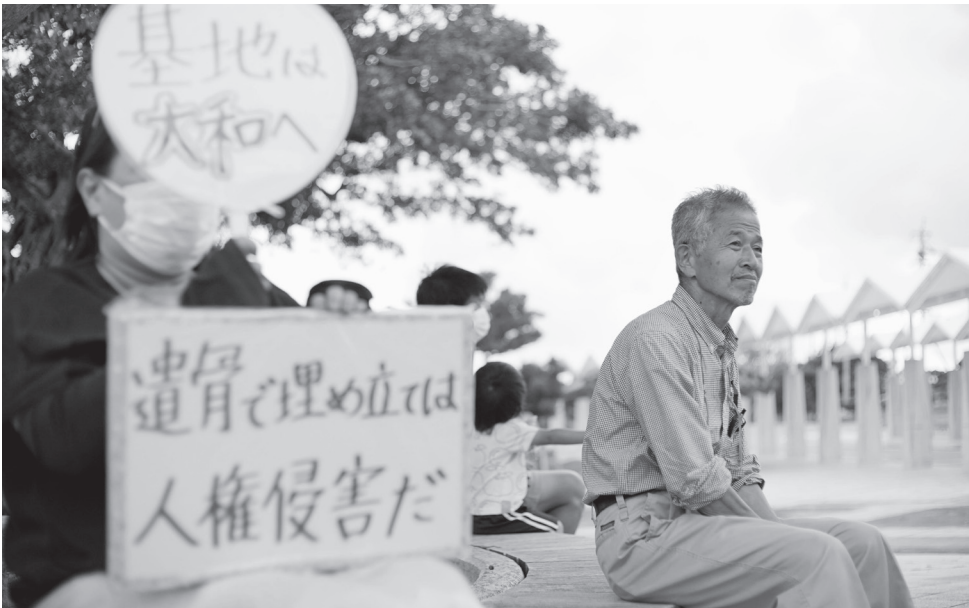 基地は
大和へ
遺骨で埋め立ては
人権侵害だ